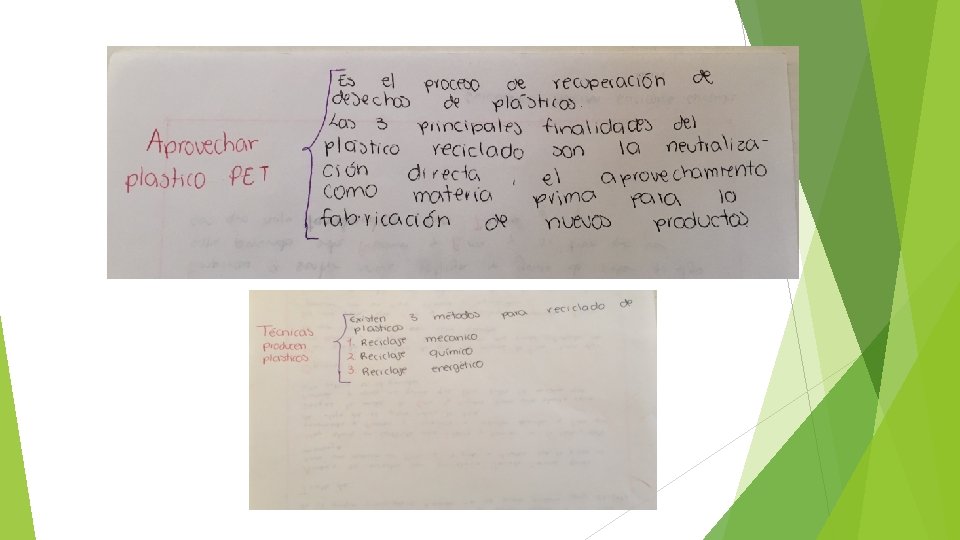 Aprovechar
plastico PET
Es el proceso de recuperación de
desechos de plásticos.
Las 3 principales finalidades del
plástico reciclado son la neutraliza-
ción directa, el aprovechamiento
como materia prima para la
fabricación de nuevos productos
Técnicas
producen
plasticos
Existen 3 métodos para reciclado de
plasticos
1. Reciclaje mecanico
2. Reciclaje químico
3. Reciclaje energético